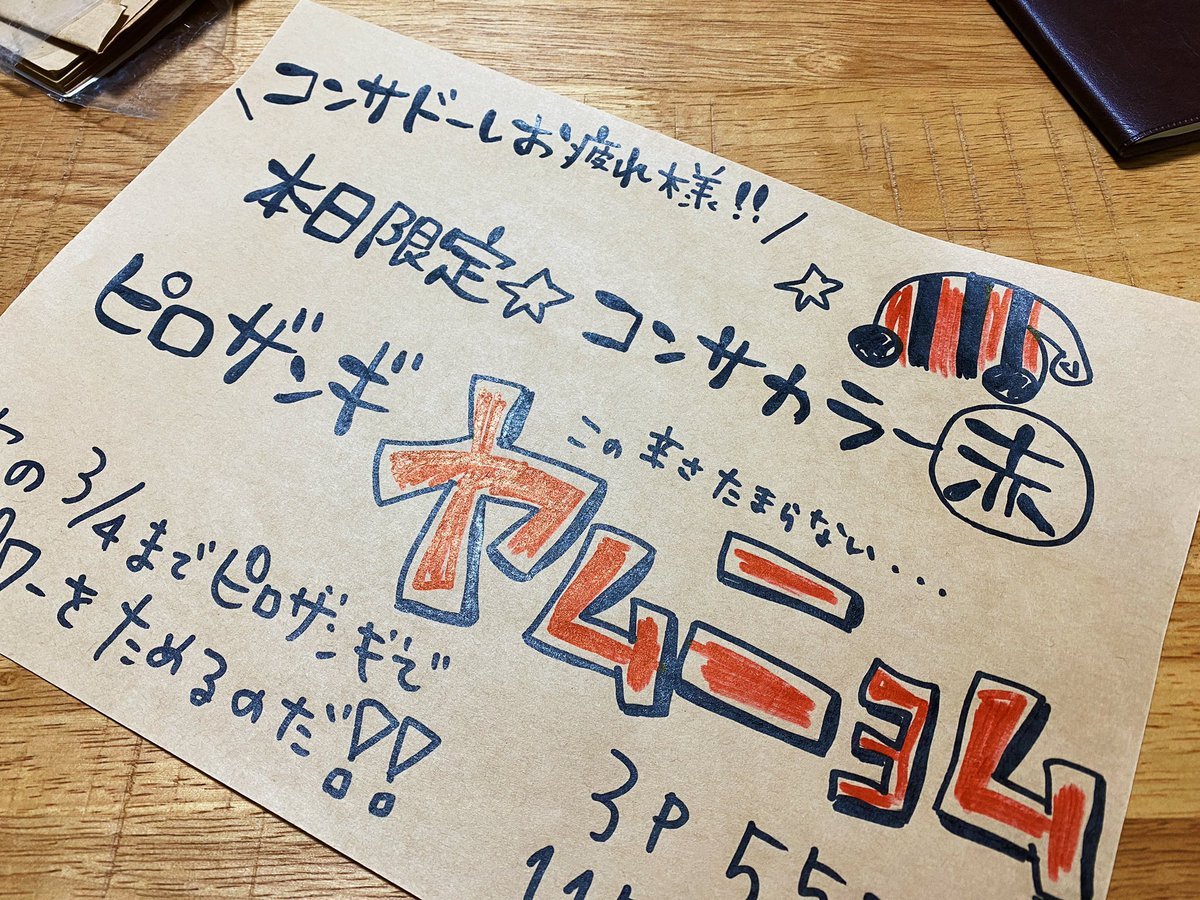 \コンサドーレお疲れ様!!/
本日限定☆コンサカラー赤
ピロザンギ
この辛さたまらない...
ヤムニョム
の 3/4までピロザンギで
ワーをためるのだ!!
3P 55